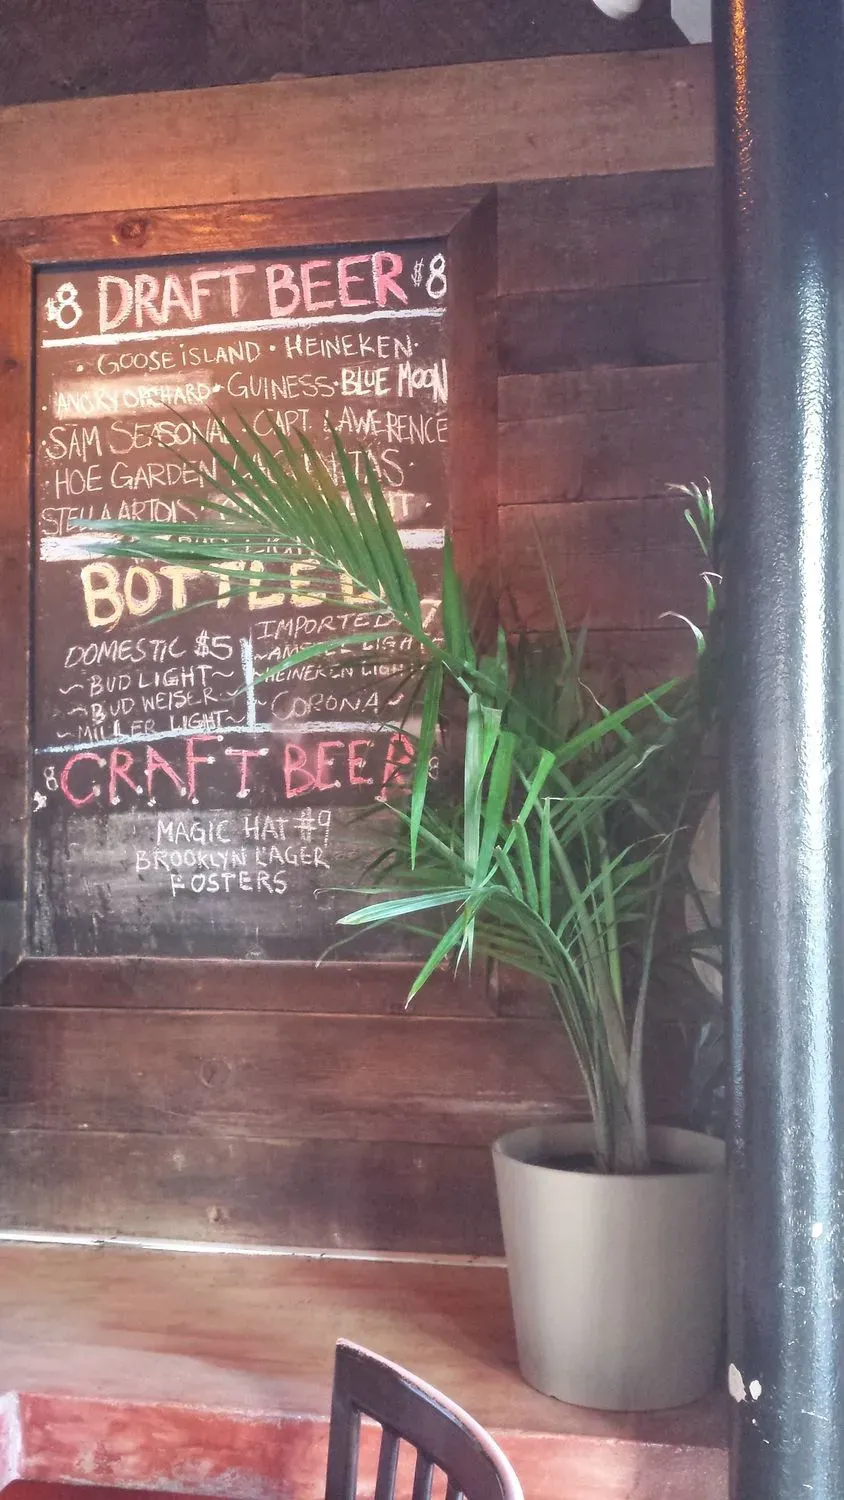 $8 DRAFT BEER $8
· GOOSE ISLAND · HEINEKEN ·
· ANGRY ORCHARD · GUINESS · BLUE MOON
· SAM SEASONAL · CAPT. LAWERENCE
· HOE GARDEN
STELLA ARTOIS ·
BUD LIGHT
BOTTLED
DOMESTIC $5
~ BUD LIGHT ~
~ BUD WEISER ~
~ MILLER LIGHT ~
IMPORTED 7
~ AMSTEL LIGHT
~ HEINEKEN LIGHT
~ CORONA ~
8 CRAFT BEER 8
MAGIC HAT #9
BROOKLYN LAGER
FOSTERS